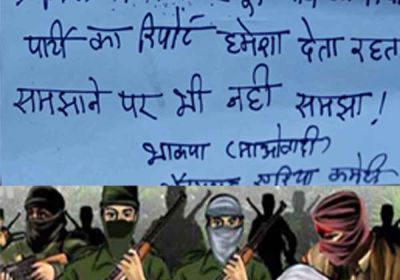 पार्टी का रिपोर्ट हमेशा देता रहता
समझाने पर भी नही समझा!
भाकपा (माओवादी)
एरिया कमेटी